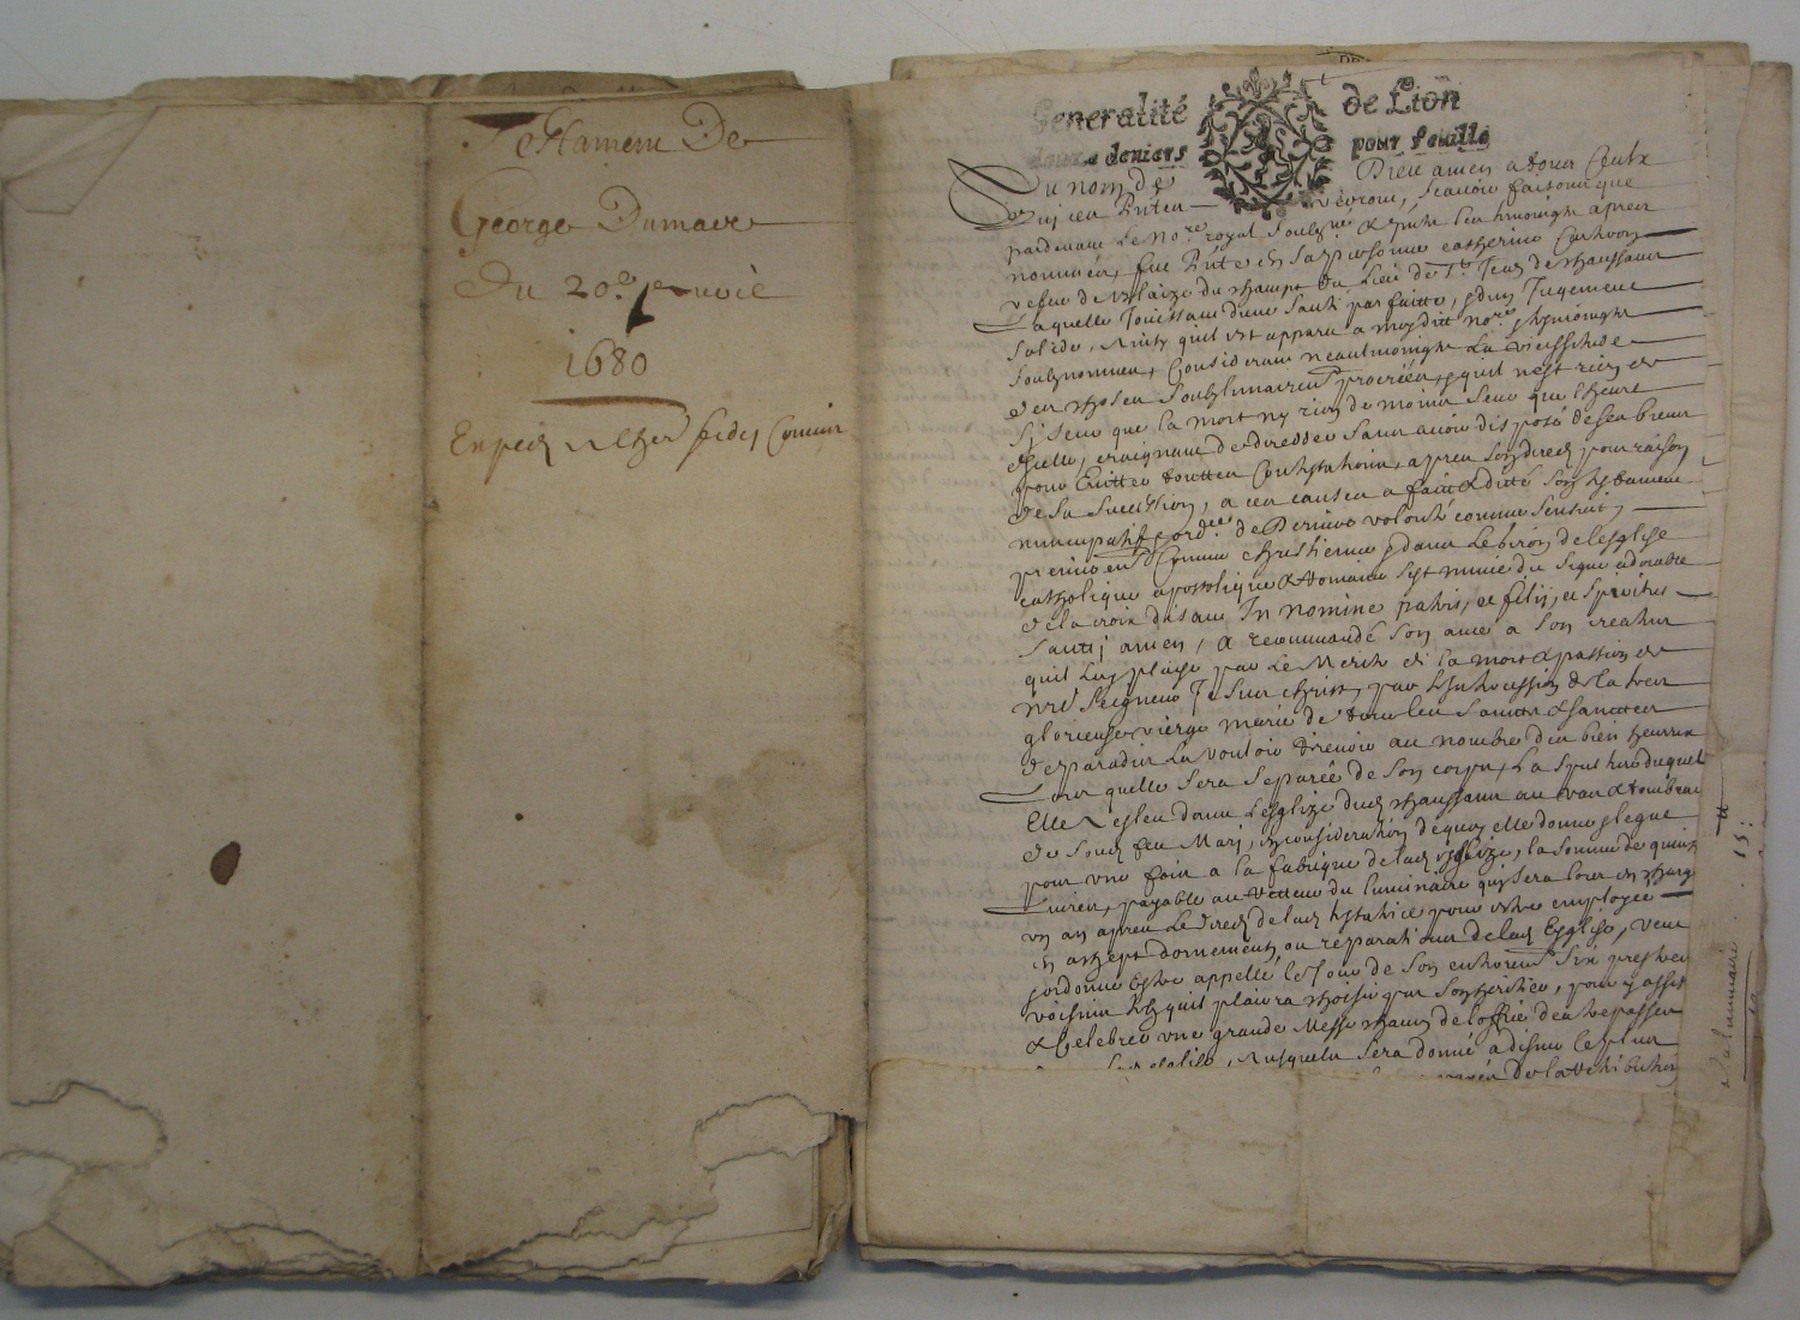 Testament De
George Dumaere
Du 20e
1680
Generalité de Lion
deniers pour feuille
Du nom de Dieu amen a tous Ceulx
verront, scavoir faisons que
pardevant Le Nore royal soubzné & apres
nommés, fut en sa personne catherine
vefve de blaize du champt du Lieu de St Jean de chaussan
Laquelle Jouissant dune santé parfaitte, & dun Jugement
solide, ainsy quil est apparu a moydit nore
soubznommes, Considerant neaulmoingtz La vicissitude
des choses soubzlunaires procréés, & quil nest rien de
sy seur que la mort ny rien de moins seur que Lheure
dicelle, craignant de dissedder sans avoir disposé de ses biens
pour Evitter touttes Contestations, apres son deces pour raison
de sa succession, a ces causes a fait & dicté son testament
nuncupatif de Derniere volonté comme sensuit,
premierement Comme chrestienne & dans Le giron de lesglise
catholique apostolique & Romaine sest munie du signe adorable
de la croix disant In nomine patris, et filij, et spiritus
santi, amen, a recommandé son ame a son createur
quil Luy plaise par Le Merite de la mort & passion de
nre seigneur Jesus christ, par Lintercession de la tres
glorieuse vierge marie de tous les saincts & sainctes
de paradis La vouloir recevoir au nombre des bien heureux
Lors quelle sera separée de son corps, La sepulture duquel
Elle a esleu dans Lesglize dud chaussan au vas & tombeau
de sond feu Mary, en consideration dequoy elle donne & legue
pour une fois a la fabrique de lad esglize, la somme de quinze
Livres, payable au Recteur du luminaire quy sera lors en charge
un an apres Le deces de lad testatrice pour estre employée
en achept dornements ou reparations de lad Esglise, veut
& ordonne Estre appellé le Jour de son enterrement six prestres
voisins telz quil plaira choisir par son heritier, pour y assister
& Celebrer une grande Messe & de loffice des trepasses
ausquels sera donné a disner
de la retribution
luminaire 15